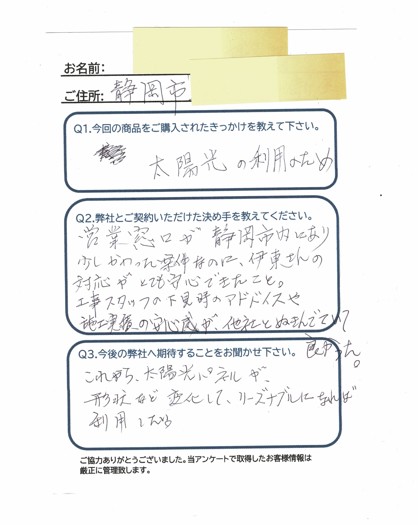 お名前:
ご住所: 静岡市
Q1.今回の商品をご購入されたきっかけを教えて下さい。
太陽光の利用のため
Q2.弊社とご契約いただけた決め手を教えてください。
営業窓口が静岡市内にあり
少しかわった案件なのに、伊東さんの
対応がとても安心できたこと。
工事スタッフの下見時のアドバイスや
施工実績の安心感が、他社とぬきんでていて
良かった。
Q3.今後の弊社へ期待することをお聞かせ下さい。
これから、太陽光パネルが、
形状など変化して、リーズナブルになれば
利用したい
ご協力ありがとうございました。当アンケートで取得したお客様情報は
厳正に管理致します。